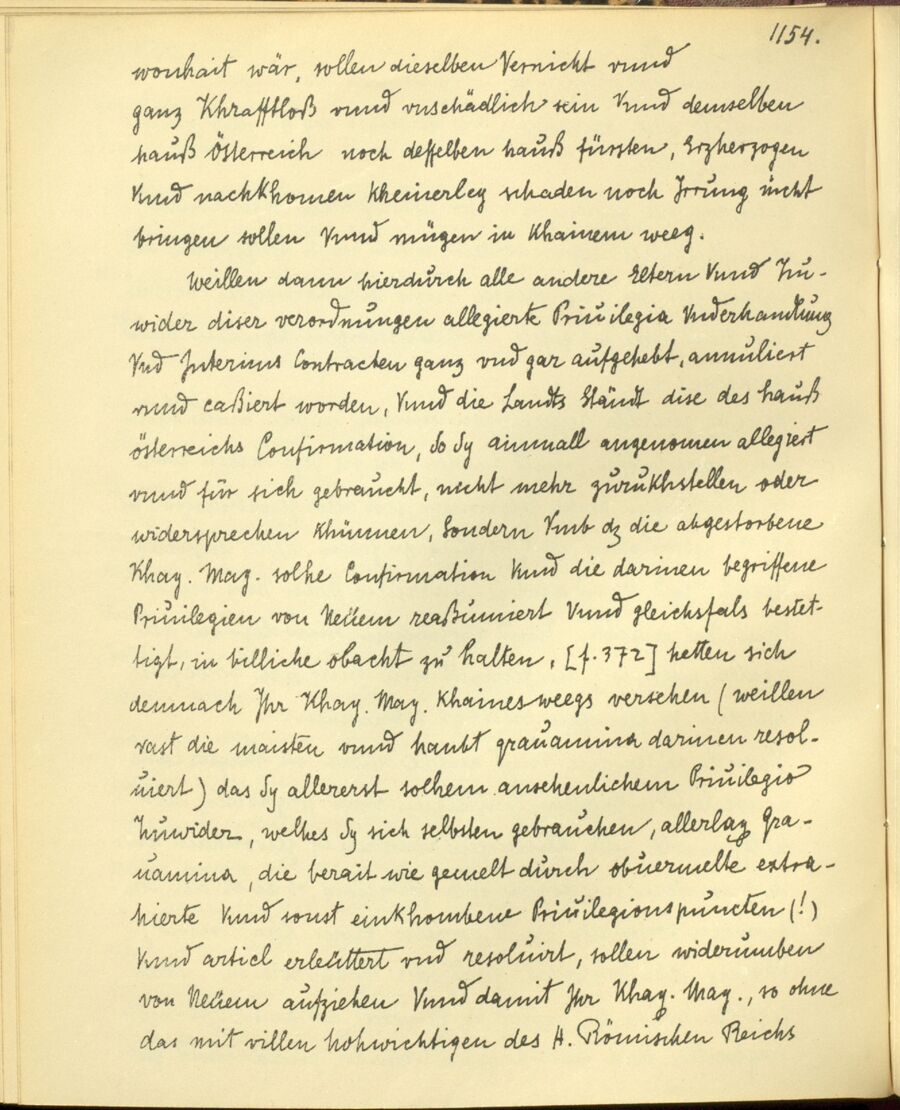 1154.
wonhait wär, sollen dieselben Vernicht vnnd
ganz Khrafftloß vnnd vnschädlich sein Vnnd demselben
hauß Österreich noch desselben hauß fürsten, Erzherzogen
Vnnd nachkhomen kheinerley schaden noch Jrrung nicht
bringen sollen Vnnd mügen in khainem weeg.
Weillen dann hierdurch alle andere Eltern Vnnd Zu-
wider diser verordnungen allegierte Priuilegia Vnderhandlung
Vnd Interims Contracten ganz vnd gar aufgehebt, annuliert
vnnd caßiert worden, Vnnd die Landts Ständt dise des hauß
österreichs Confirmation, So Sy ainmall angenomen allegiert
vnnd für sich gebraucht, nicht mehr zurukhstellen oder
widersprechen khünnen, Sondern Vmb dz die abgestorbene
Khay. May. solhe Confirmation Vnnd die darinen begriffene
Priuilegien von Neüem reaßumiert Vnnd gleichsfals bestet-
tigt, in billiche obacht zu halten, [f. 372] hetten sich
demnach Ihr Khay. May. khainesweegs versehen (weillen
vast die maisten vnnd haubt grauamina darinen resol-
uiert) das Sy allererst solhem ansehenlichem Priuilegio
Zuwider, welhes Sy sich selbsten gebrauchen, allerlay Gra-
uamina, die berait wie gemelt durch obuermelte extra-
hierte Vnnd sonst einkhombene Priuilegionspuncten (!)
Vnnd articl erleüttert vnd resoluirt, sollen widerumben
von Neüem aufziehen Vnnd damit Ihr Khay. May., so ohne
das mit villen hohwichtigen des H. Römischen Reichs